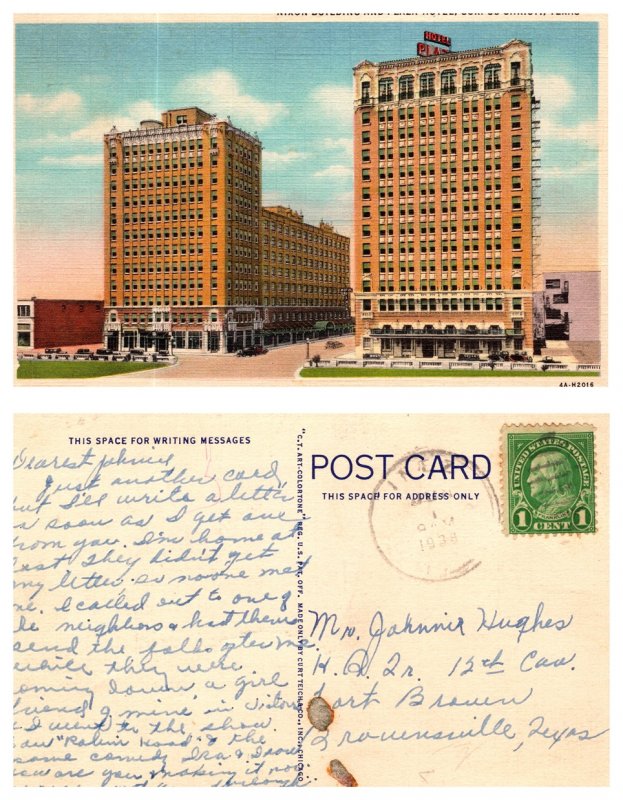 NIXON BUILDING AND PLAZA HOTEL, CORPUS CHRISTI, TEXAS
HOTEL
PLAZA
4A-H2016
THIS SPACE FOR WRITING MESSAGES
Dearest Johnnie
Just another card
but I'll write a letter
as soon as I get one
from you. I'm home at
last they didn't get
my letter so no one met
me. I called out to one of
the neighbors & had them
send the folks after me
while they were
coming down a girl
friend of mine in Victoria
& I went to the show.
saw "Robin Hood" & the
some comedy Ira & I saw
are you making it now
"C.T. ART-COLORTONE" REG. U.S. PAT. OFF. MADE ONLY BY CURT TEICH & CO., INC., CHICAGO
POST CARD
THIS SPACE FOR ADDRESS ONLY
1938
UNITED STATES POSTAGE
1 CENT 1
FRANKLIN
Mr. Johnnie Hughes
H.Q. Tr. 12th Cav.
Fort Brown
Brownsville, Texas